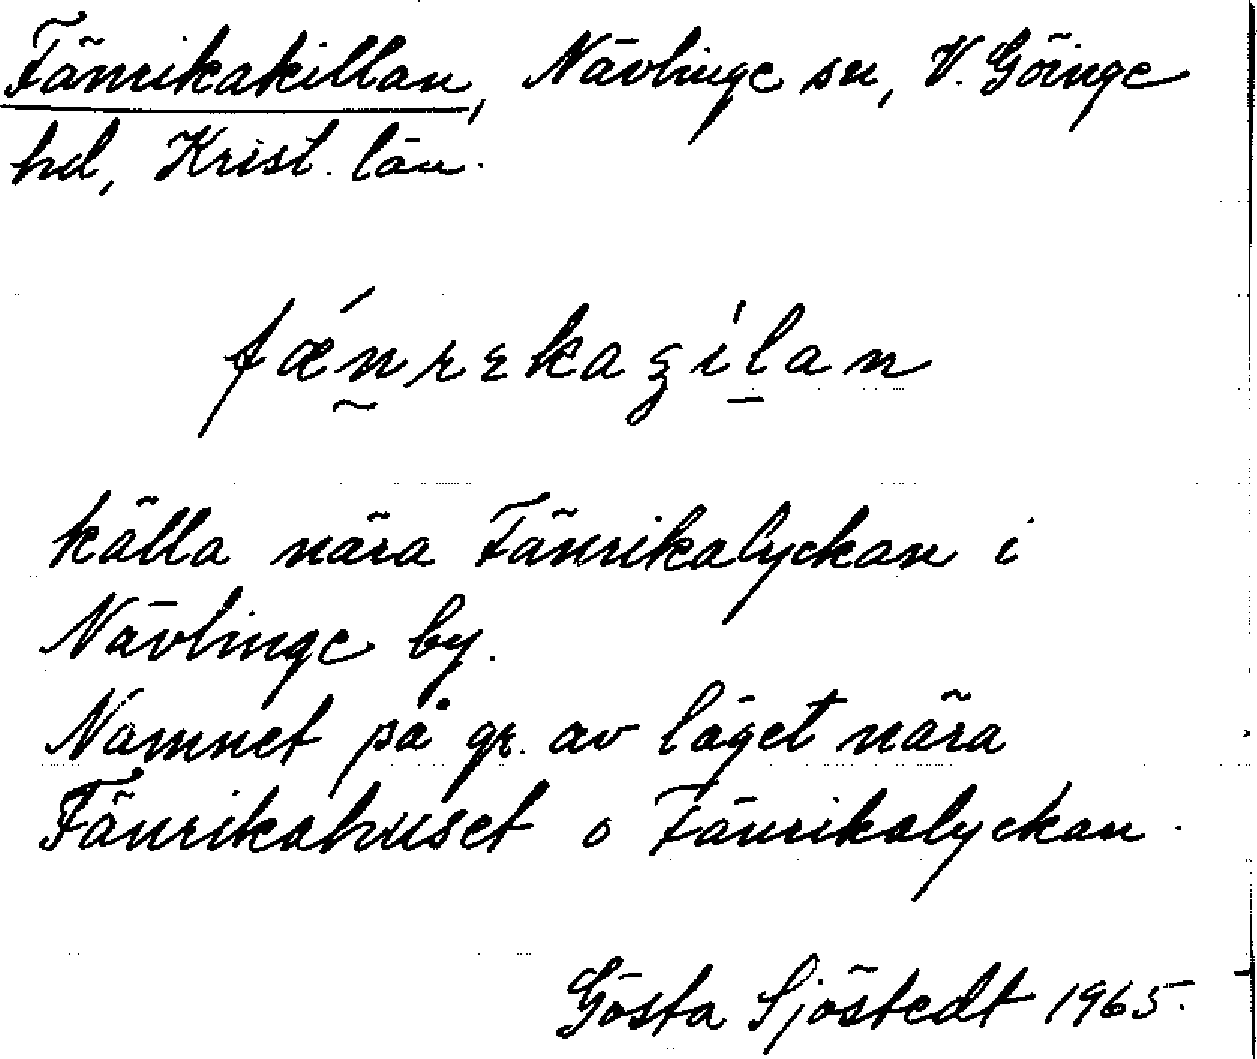 Fänrikakillan, Nävlinge sn, V. Göinge
hd, Krist. län.
fǽnrekagilan
källa nära Fänrikalyckan i
Nävlinge by.
Namnet på gr. av läget nära
Fänrikahuset o Fänrikalyckan.
Gösta Sjöstedt 1965.